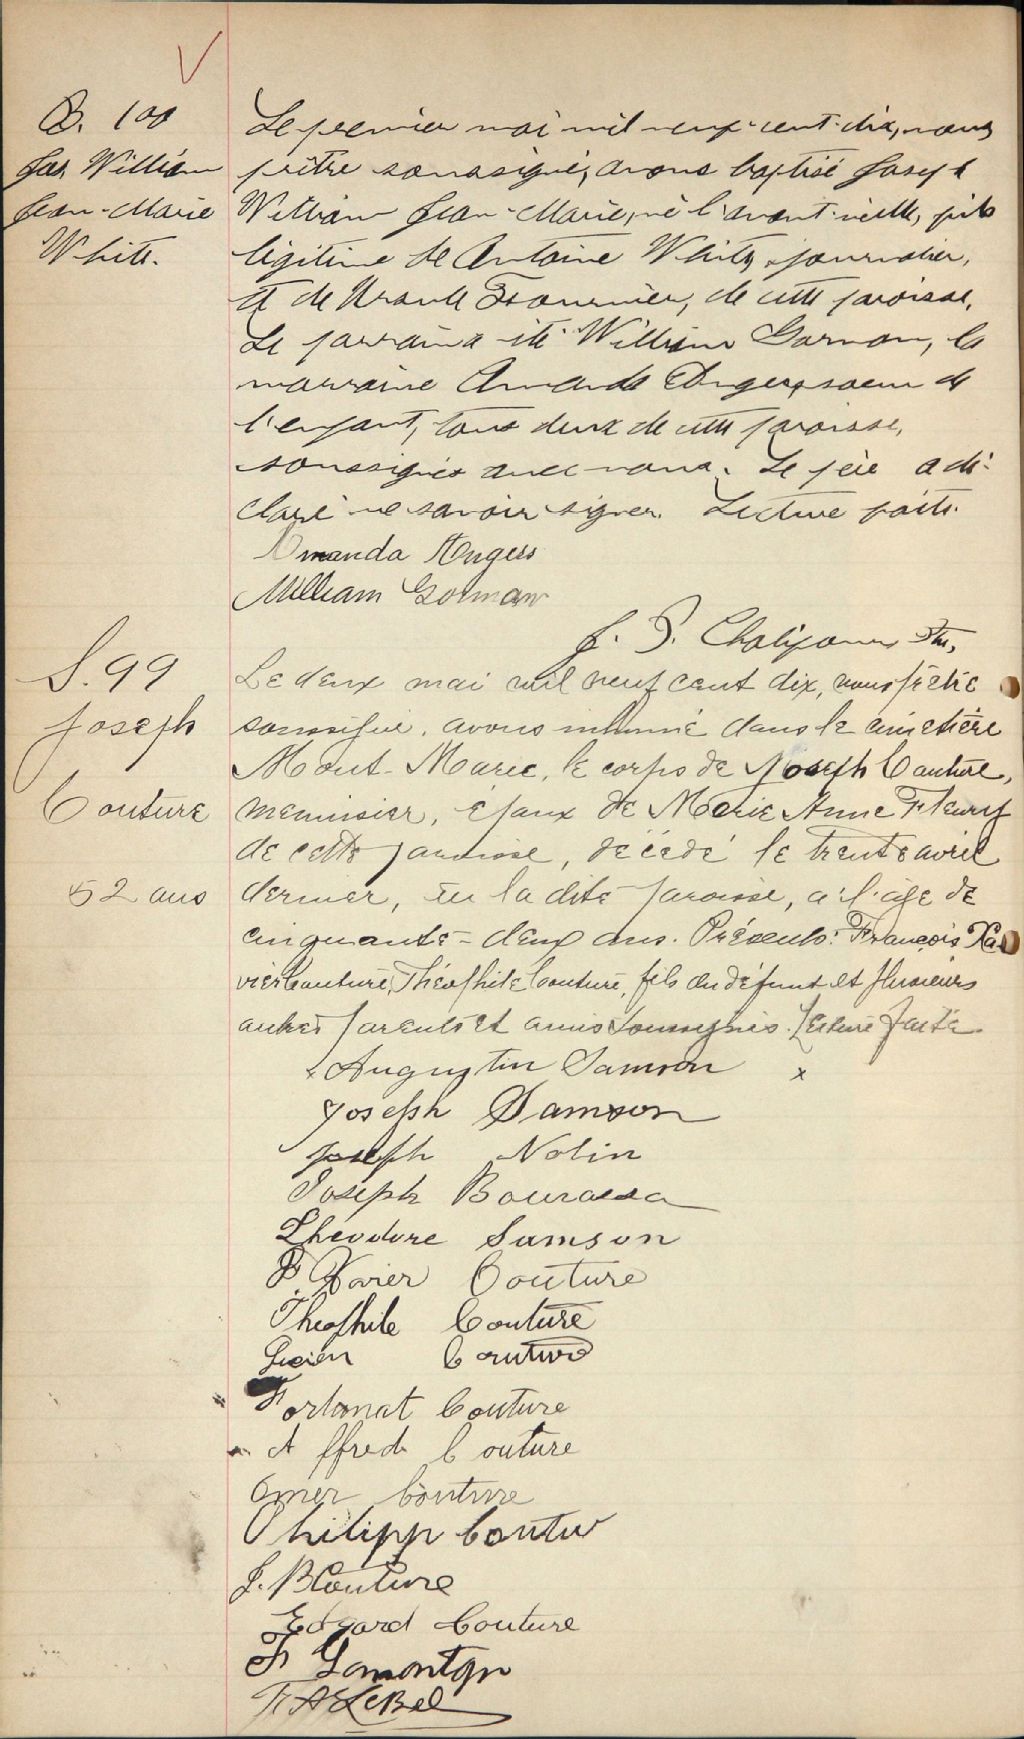 B. 100
Jos. William
Jean-Marie
White.
Le premier mai mil neuf-cent-dix, nous
prêtre soussigné, avons baptisé Joseph
William Jean-Marie, né l'avant-veille, fils
légitime de Antoine White, journalier,
et de Fournier, de cette paroisse.
Le parrain a été William Gorman, la
marraine Amanda Angers, soeur de
l'enfant, tous deux de cette paroisse,
soussignés avec nous. Le père a dé-
claré ne savoir signer. Lecture faite.
Amanda Angers
William Gorman
J. P. Ptre,
S. 99
Joseph
Couture
52 ans
Le deux mai mil neuf cent dix, nous prêtre
soussigné, avons inhumé dans le cimetière
Mont-Marie, le corps de Joseph Couture,
menuisier, époux de Marie Anne Fleury
de cette paroisse, décédé le trente avril
dernier, en la dite paroisse, à l'âge de
cinquante-deux ans. Présents: François Xa-
vier Couture, Théophile Couture, fils du défunt et plusieurs
autres parents et amis soussignés. Lecture faite.
x Augustin Samson x
Joseph Samson
Joseph Nolin
Joseph Bourassa
Theodore Samson
F. Xavier Couture
Theophile Couture
Lucien Couture
Fortunat Couture
Alffred Couture
Omer Couture
Philipp Coutur
J. B Couture
Edgard Couture
F A LeBel